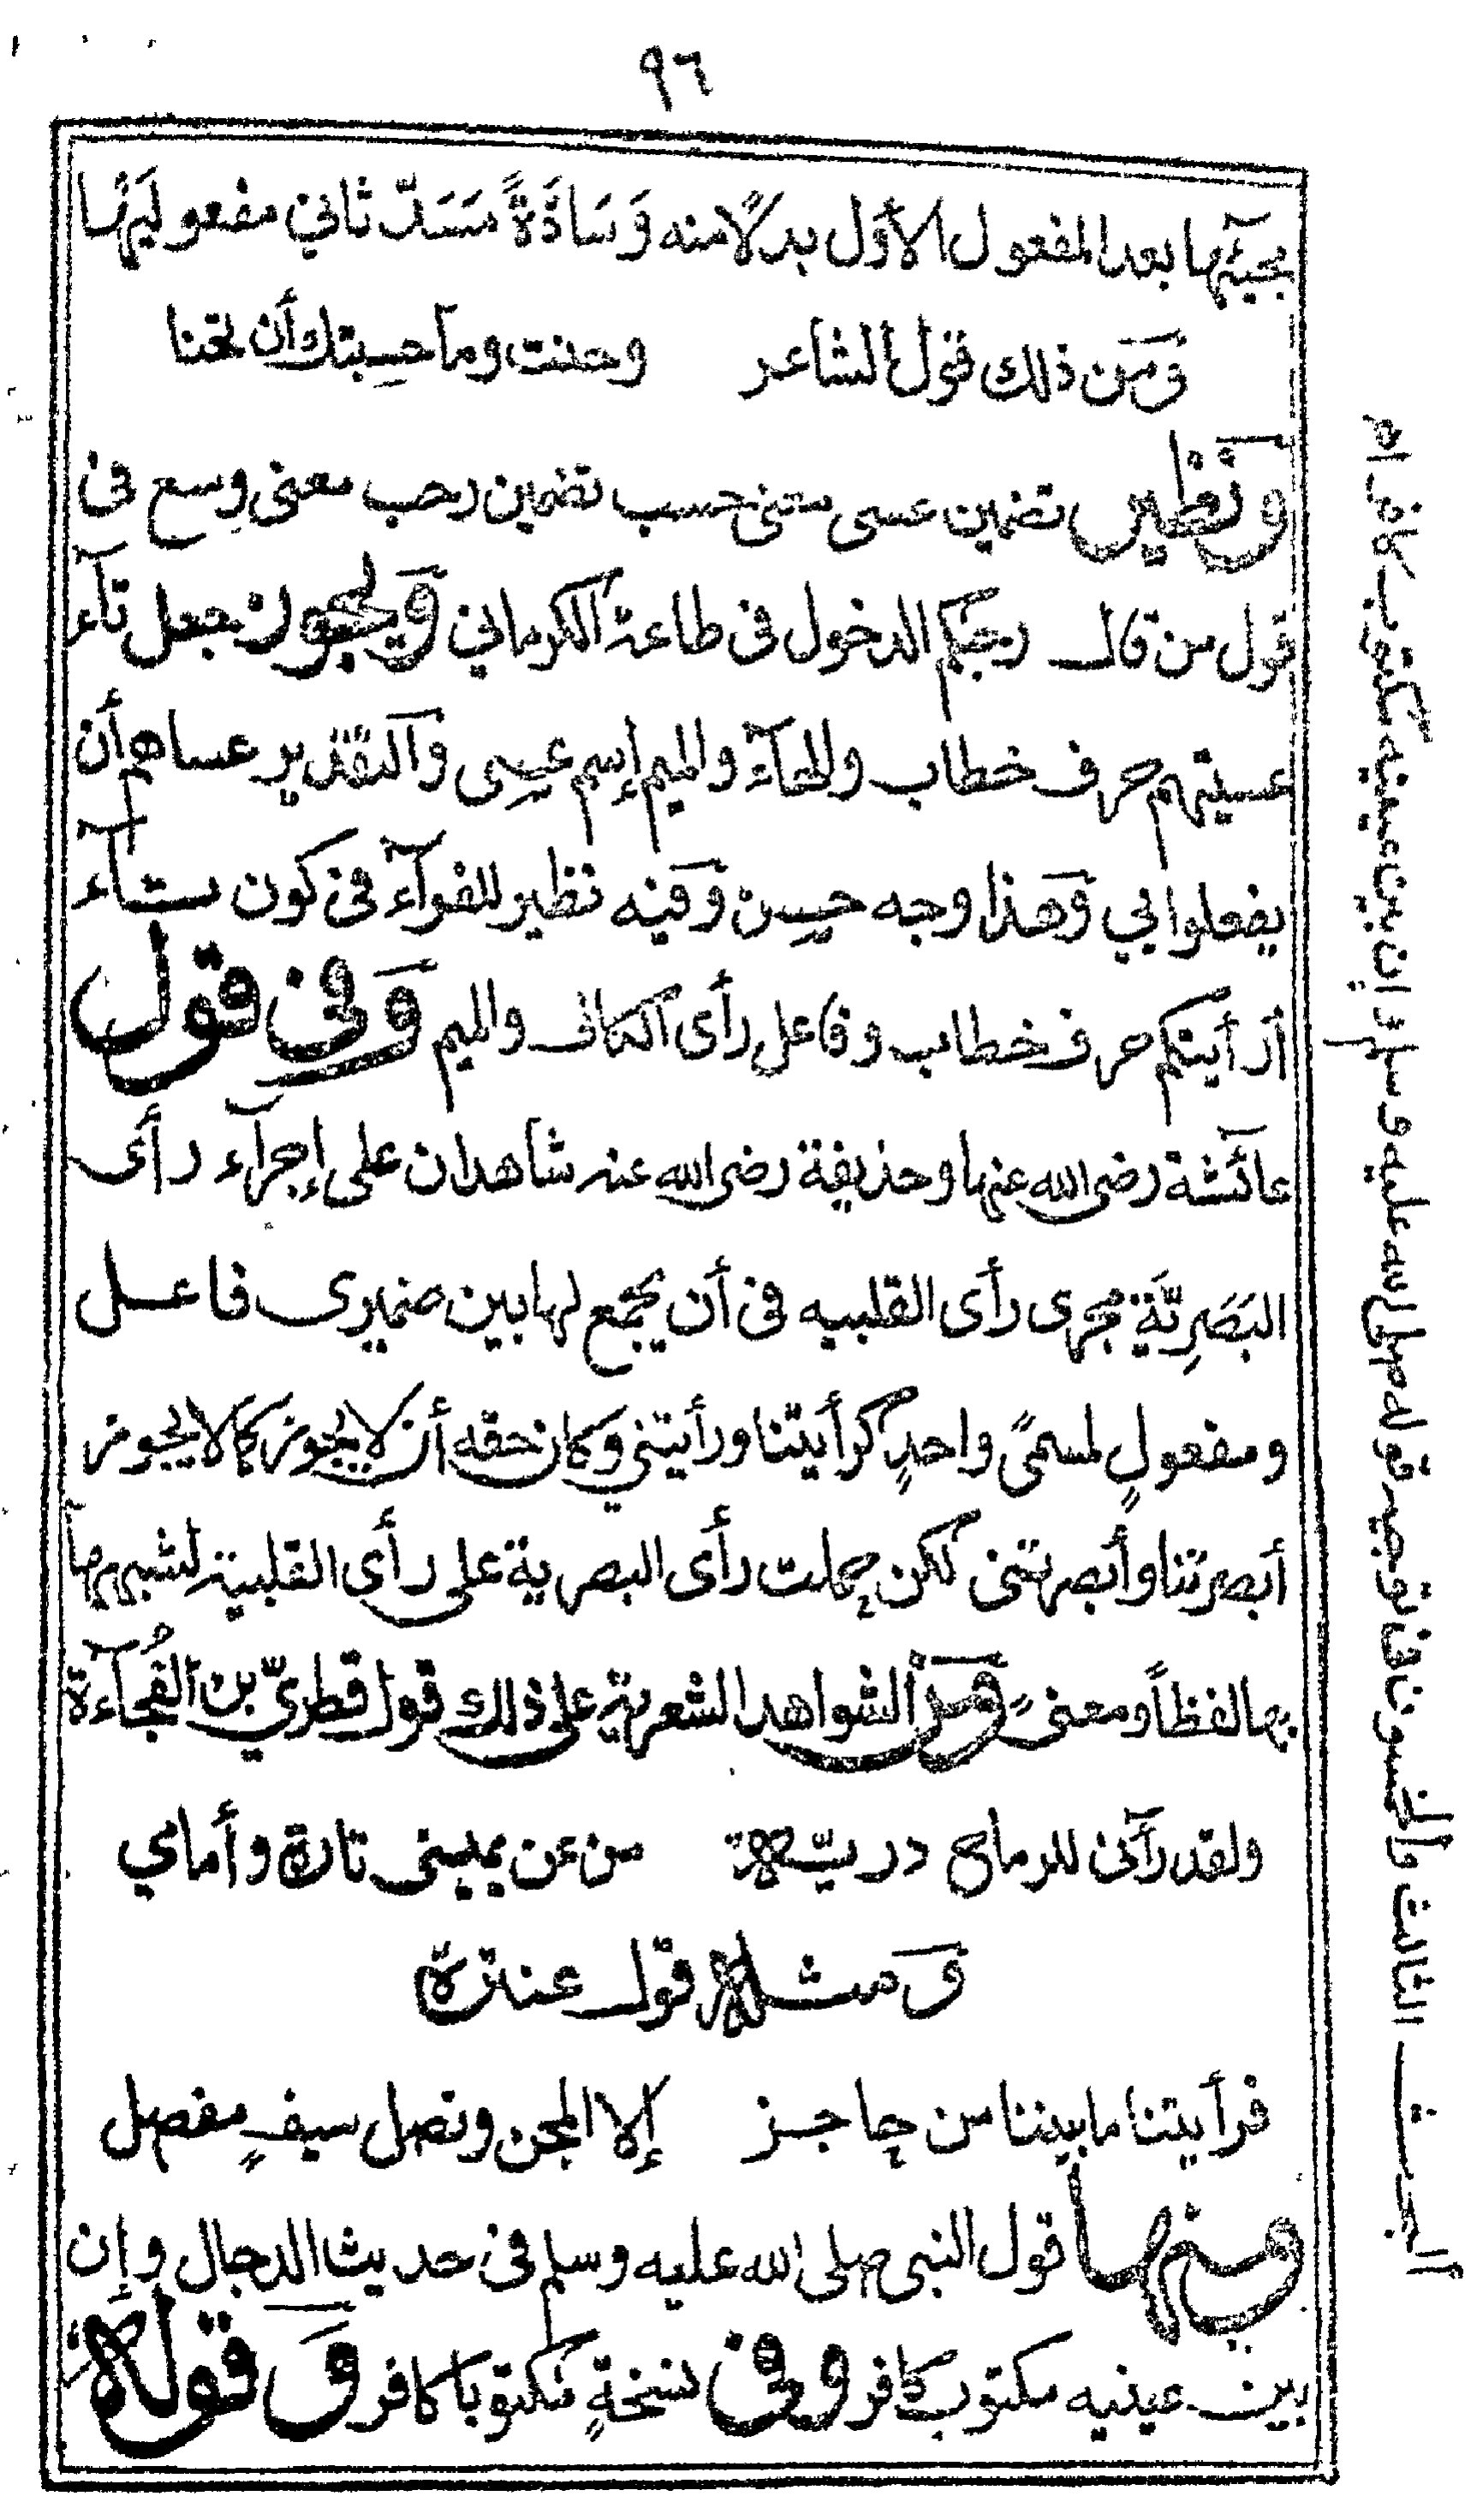 ٩٦
مجيئها بعد المفعول الأوّل بدلًا منه وَسَادَّةً مَسَدّ ثاني مفعوليَها
وَمن ذلك قول الشاعر وحنت وما حسِبتك أن تحنا
وَنظير تضمين عسى معنى حسب تضمين رحب معنى وسع فى
قول من قال رحبكم الدخول فى طاعة الكرماني وَيجوز جعل تآء
عسيتهم حرف خطاب والهآء والميم إسم عسى وَالتقدير عساهم أن
يفعلوا بي وَهذا وجه حسن وَفيه نظير للفرآء فى كون تآء
أرأيتكم حرف خطاب وفاعل رأى الكاف والميم وَفى قول
عائشة رضى الله عنها وحذيفة رضى الله عنه شاهدان على إجرآء رأى
البَصَرِيَّة مجرى رأى القلبيه فى أن يجمع لها بين ضميرى فاعل
ومفعولٍ لمسمىً واحدٍ كرأيتنا ورأيتني وكان حقه أن لا يجوز كما لا يجوز
أبصرتنا وأبصرتنى لكن حملت رأى البصرية على رأى القلبية لشبهها
بها لفظاً ومعنىً وَمن الشواهد الشعرية على ذلك قول قطريّ بن الفُجآءة
ولقد رآنى للرماح دريّة من عن يمينى تارة وأمامي
وَمثله قول عنترة
فرأيتنا ما بيننا من حاجز إلا المجن ونصل سيفٍ مفصل
ومنها قول النبى صلى الله عليه وسلم فى حديث الدجال وإن
بين عينيه مكتوب كافر وفى نسخةٍ مكتوبا كافر وَقوله
البحث الثالث والخمسون فى توجيه قوله صلى الله عليه وسلم إن بين عينيه مكتوب كافر